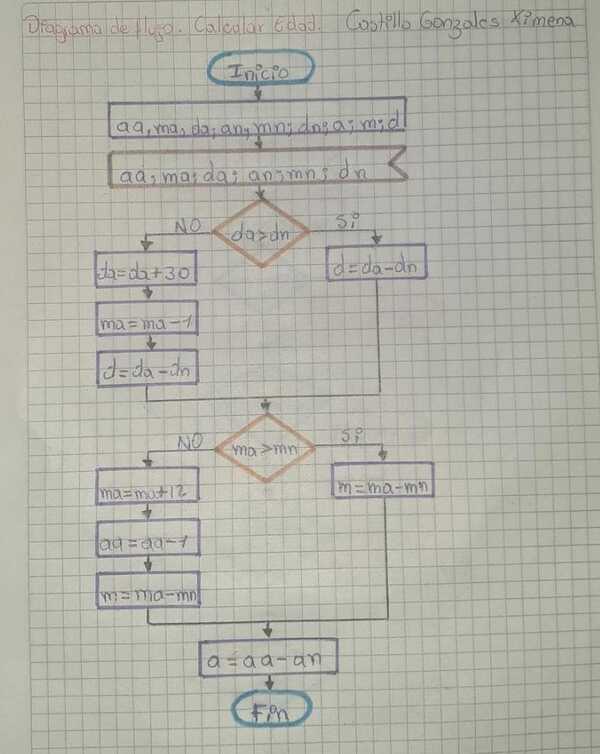 Diagrama de flujo. Calcular Edad. Castillo Gonzales Ximena
Inicio
aa, ma, da; an, mn; dn; a; m; d
aa; ma; da; an; mn; dn
NO da>dn Si
da=da+30 d=da-dn
ma=ma-1
d=da-dn
NO ma>mn Si
ma=ma+12 m=ma-mn
aa=aa-1
m=ma-mn
a=aa-an
Fin